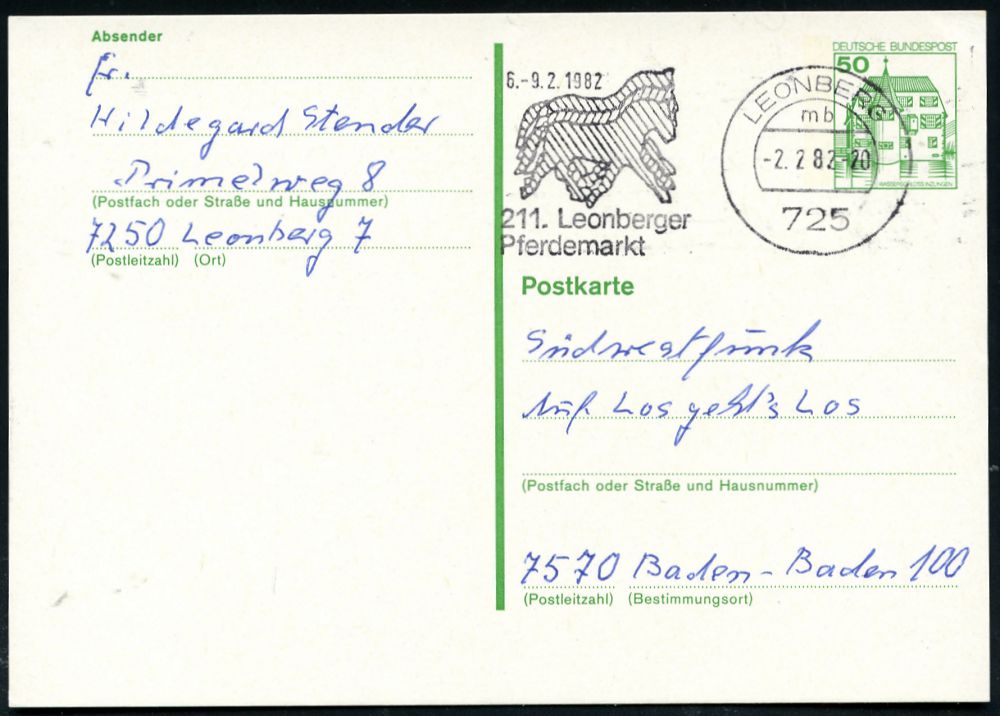 Absender
Fr.
Hildegard Stender
Primelweg 8
(Postfach oder Straße und Hausnummer)
7250 Leonberg 7
(Postleitzahl) (Ort)
6.-9.2.1982
211. Leonberger
Pferdemarkt
LEONBERG
mb
-2.2.82-20
725
DEUTSCHE BUNDESPOST
50
WASSERSCHLOSS INZLINGEN
Postkarte
Südwestfunk
Auf Los geht's Los
(Postfach oder Straße und Hausnummer)
7570 Baden-Baden 100
(Postleitzahl) (Bestimmungsort)